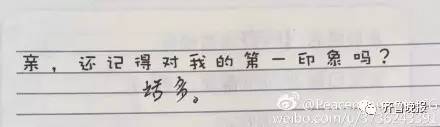 亲，还记得对我的第一印象吗？
话多。
齐鲁晚报
weibo.com/u/3736243391